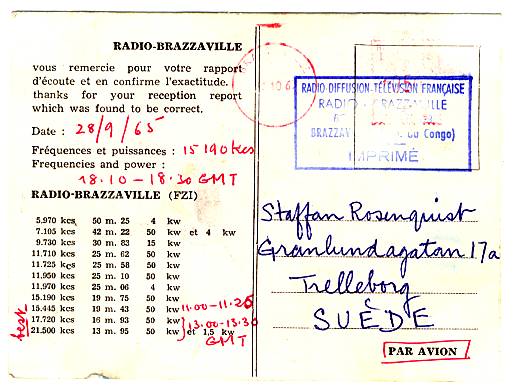 RADIO-BRAZZAVILLE
vous remercie pour votre rapport
d'écoute et en confirme l'exactitude.
thanks for your reception report
which was found to be correct.
Date : 28/9/65
Fréquences et puissances : 15190 kcs
Frequencies and power :
18.10 - 18.30 GMT
RADIO-BRAZZAVILLE (FZI)
5,970 kcs 50 m. 25 4 kw
7.105 kcs 42 m. 22 50 kw et 4 kw
9.730 kcs 30 m. 83 15 kw
11.710 kcs 25 m. 62 50 kw
11.725 kcs 25 m. 58 50 kw
11.950 kcs 25 m. 10 50 kw
11.970 kcs 25 m. 06 4 kw
15.190 kcs 19 m. 75 50 kw
15.445 kcs 19 m. 43 50 kw 11.00-11.25
17.720 kcs 16 m. 93 50 kw 13.00-13.30
21.500 kcs 13 m. 95 50 kw et 1,5 kw GMT
test
RADIO-DIFFUSION-TÉLÉVISION FRANÇAISE
RADIO BRAZZAVILLE
BRAZZAV du Congo)
IMPRIMÉ
Staffan Rosenquist
Granlundagatan 17a
Trelleborg
SUÈDE
PAR AVION